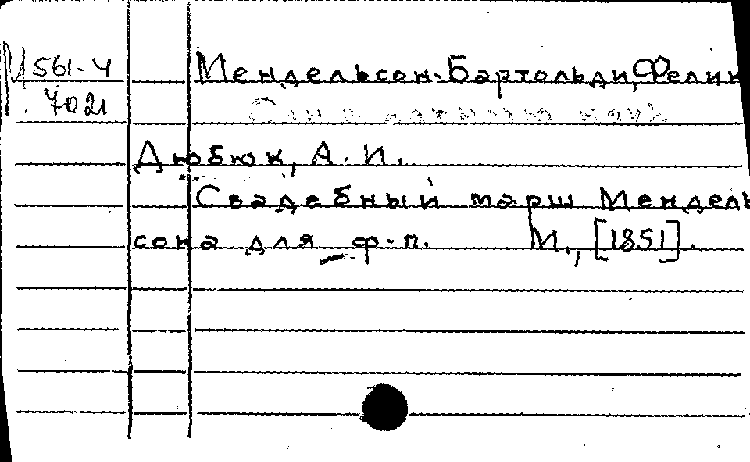 М 561-4 Мендельсон-Бартольди, Фелик
7021
Дюбюк, А. И.
Свадебный марш Мендель
сона для ф-п. М., [1851].